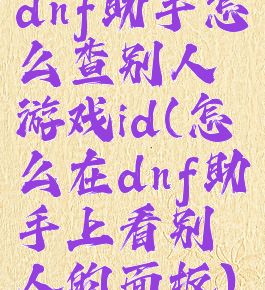 dnf助手怎
么查别人
游戏id(怎
么在dnf助
手上看别
人的面板)